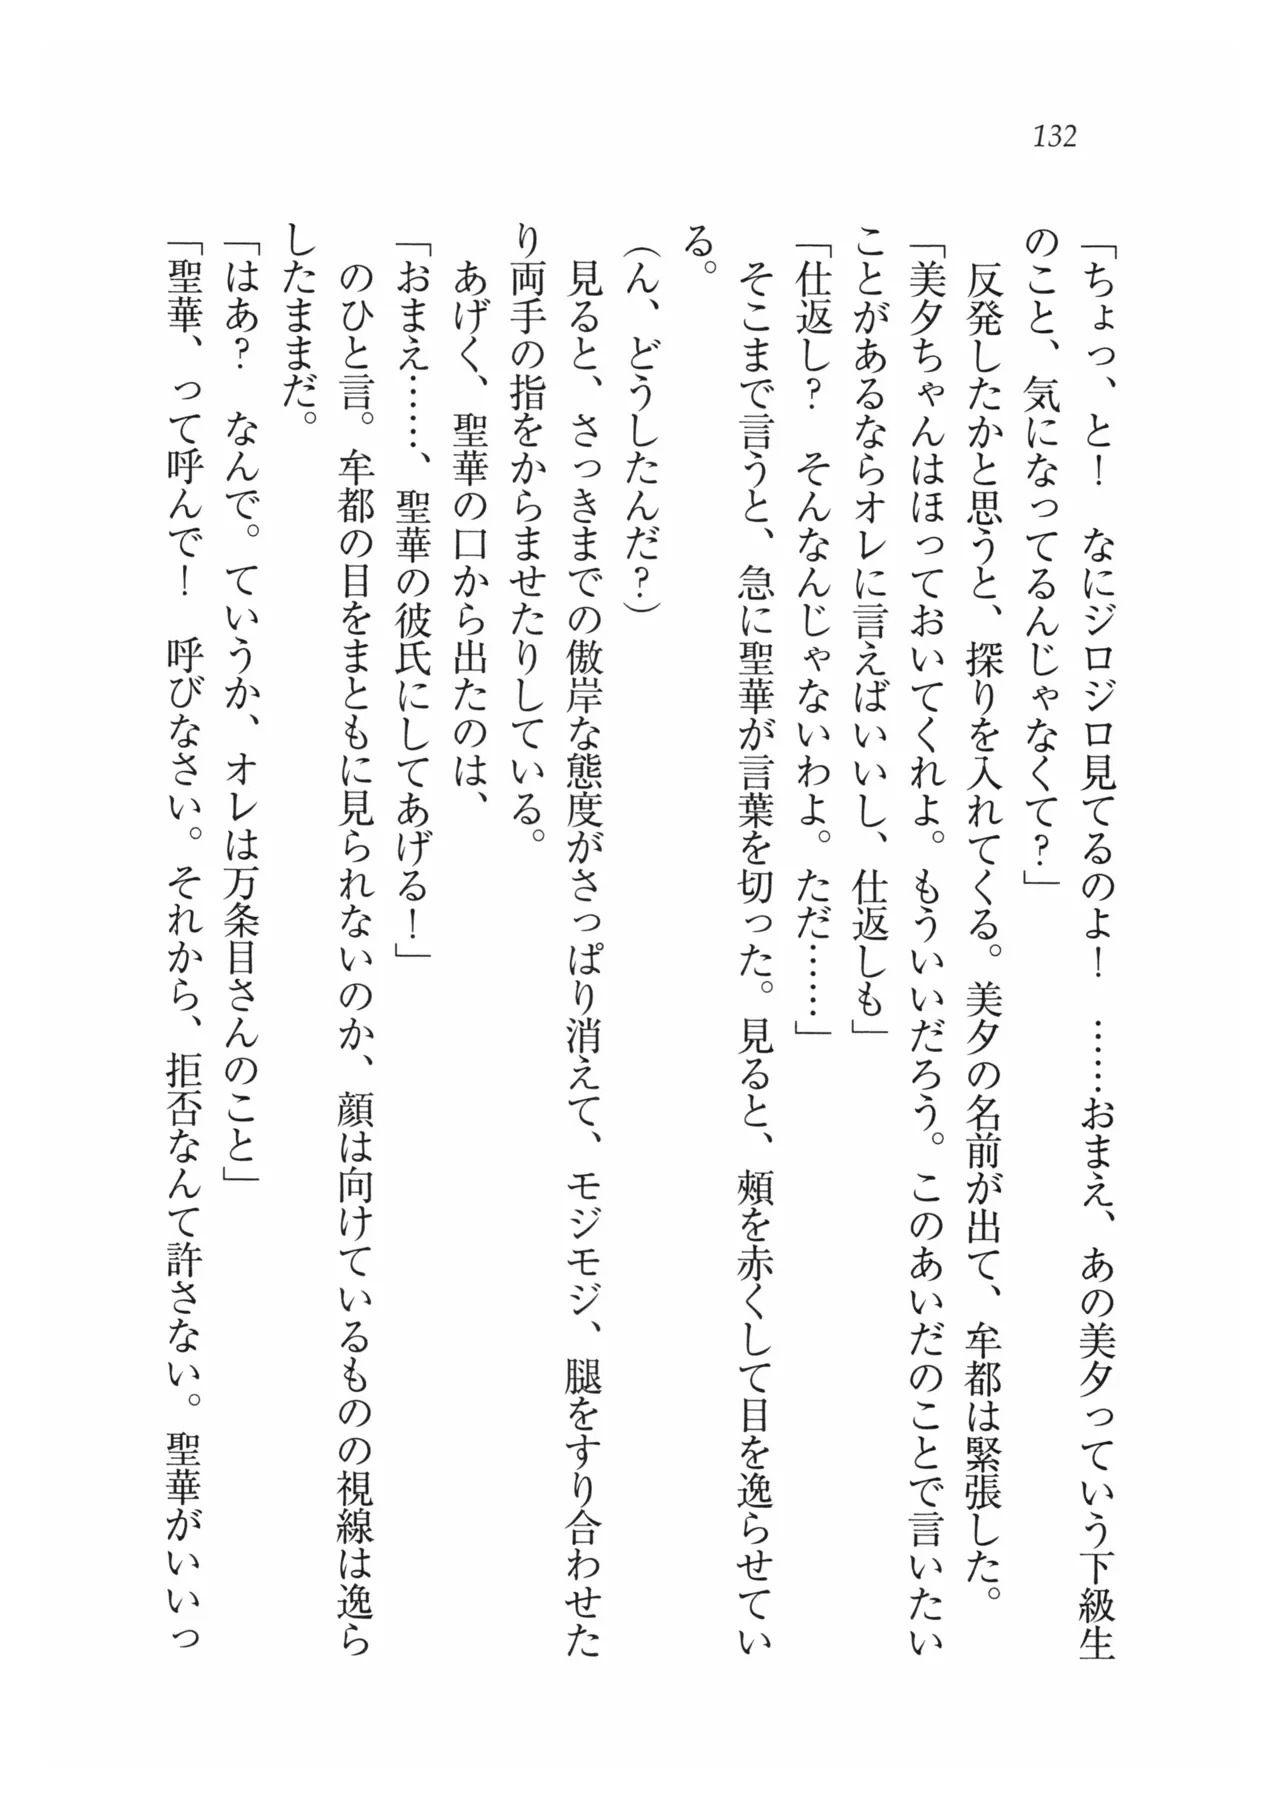 132
「ちょっ、と！　なにジロジロ見てるのよ！　……おまえ、あの美夕っていう下級生
のこと、気になってるんじゃなくて？」
　反発したかと思うと、探りを入れてくる。美夕の名前が出て、牟都は緊張した。
「美夕ちゃんはほっておいてくれよ。もういいだろう。このあいだのことで言いたい
ことがあるならオレに言えばいいし、仕返しも」
「仕返し？　そんなんじゃないわよ。ただ……」
　そこまで言うと、急に聖華が言葉を切った。見ると、頰を赤くして目を逸らせてい
る。
（ん、どうしたんだ？）
　見ると、さっきまでの傲岸な態度がさっぱり消えて、モジモジ、腿をすり合わせた
り両手の指をからませたりしている。
　あげく、聖華の口から出たのは、
「おまえ……、聖華の彼氏にしてあげる！」
　のひと言。牟都の目をまともに見られないのか、顔は向けているものの視線は逸ら
したままだ。
「はあ？　なんで。ていうか、オレは万条目さんのこと」
「聖華、って呼んで！　呼びなさい。それから、拒否なんて許さない。聖華がいいっ